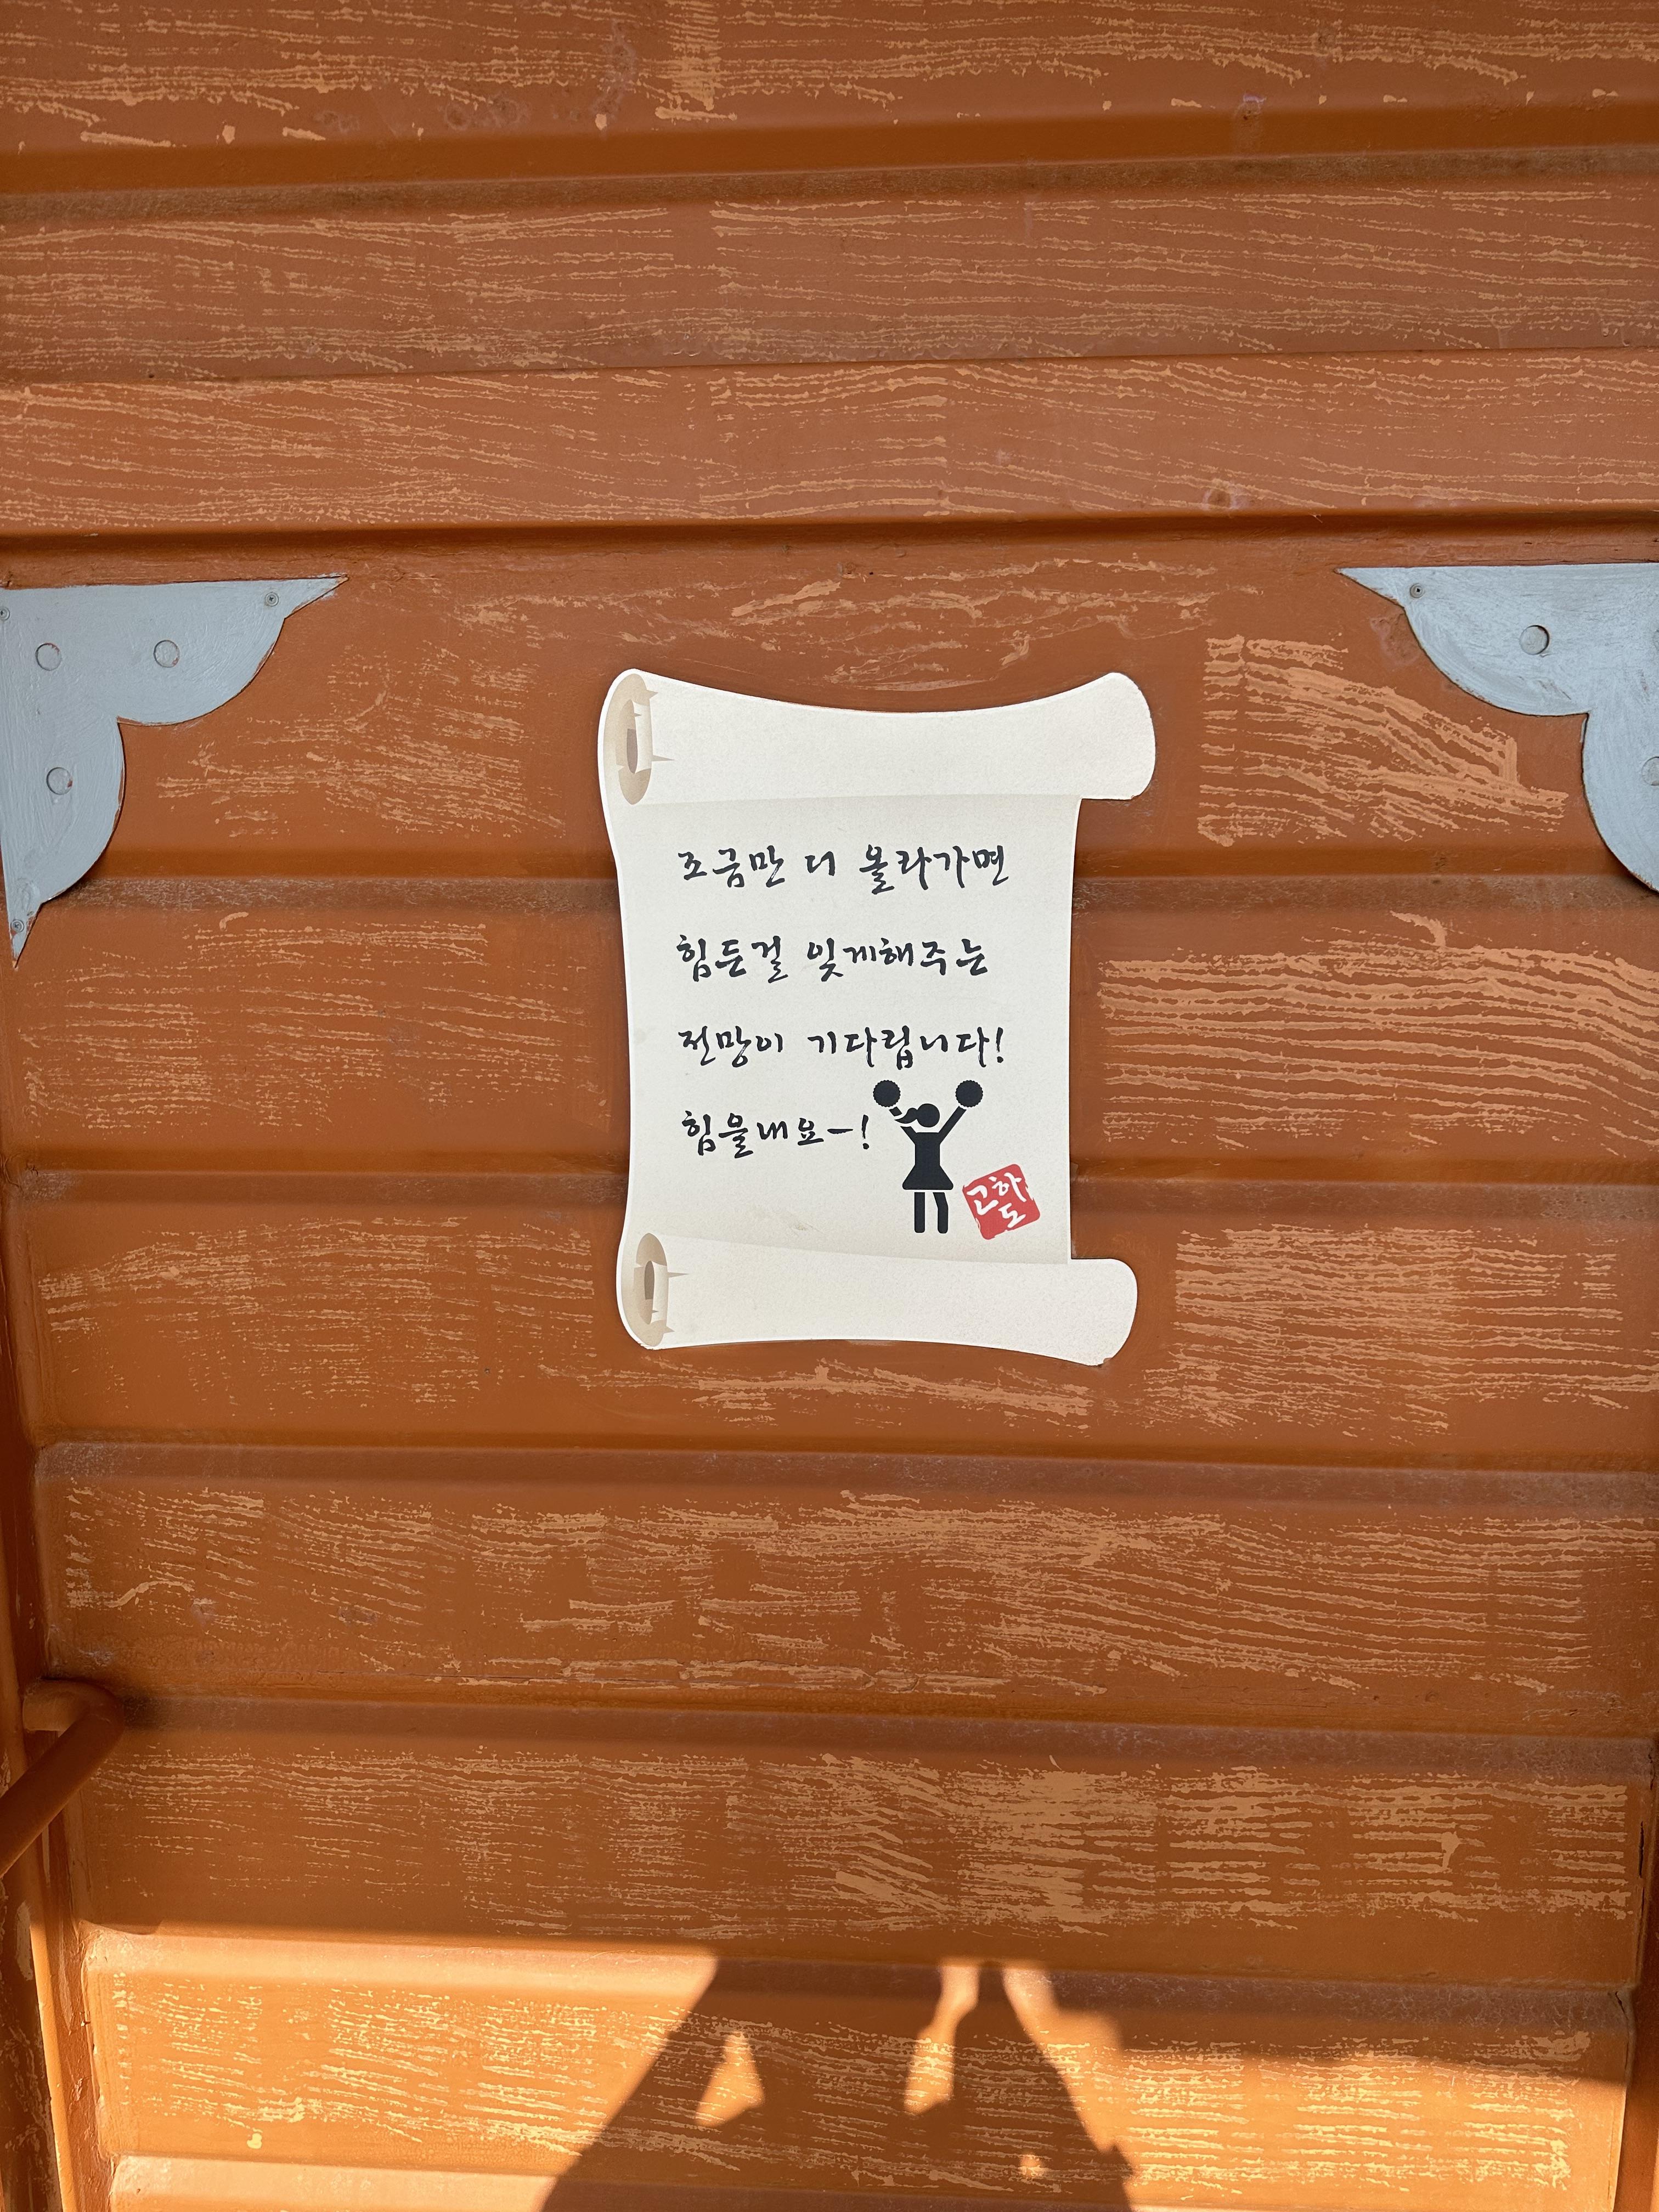 조금만 더 올라가면
힘든걸 잊게해주는
전망이 기다립니다!
힘을내요~!
고하
도